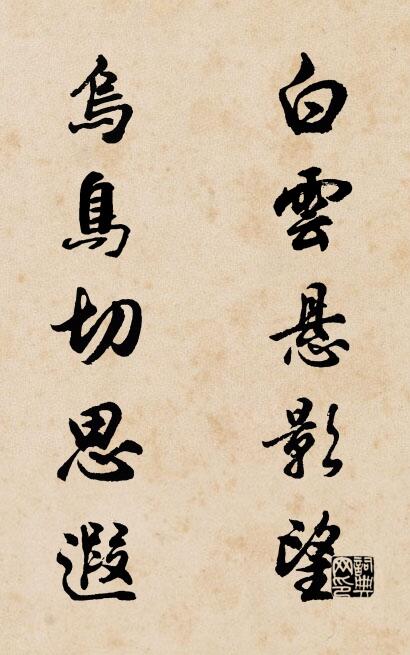 白雲悬影望
烏鳥切思遐
詞典網印